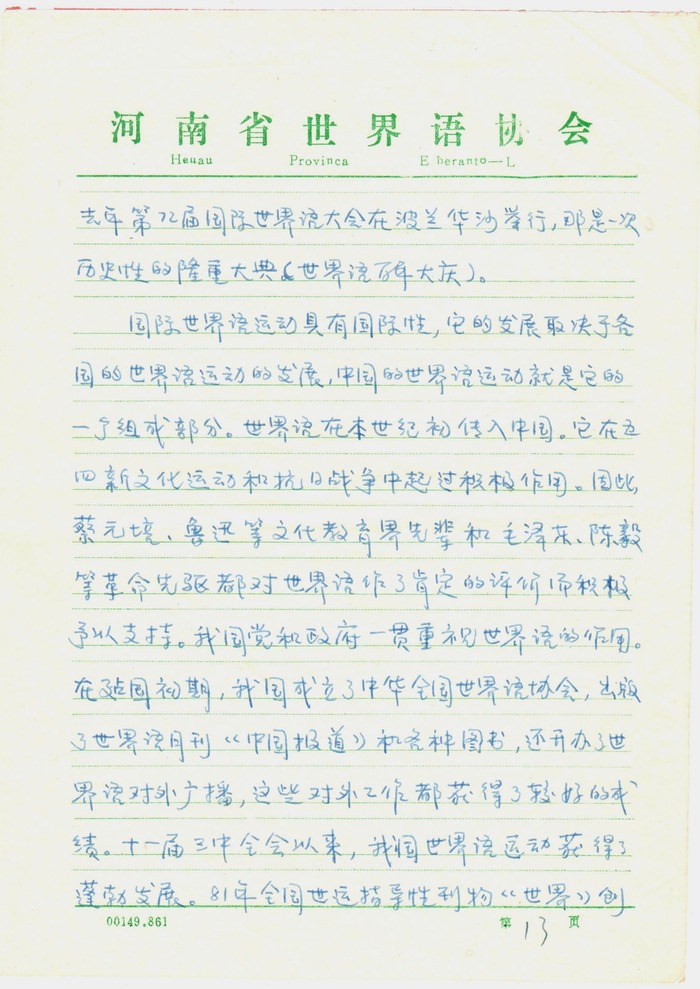 河南省世界语协会
Henau Provinca Eberanto—L
去年第72届国际世界语大会在波兰华沙举行,那是一次
历史性的隆重大典(世界语百年大庆)。
国际世界语运动具有国际性,它的发展取决于各
国的世界语运动的发展,中国的世界语运动就是它的
一个组成部分。世界语在本世纪初传入中国。它在五
四新文化运动和抗日战争中起过积极作用。因此,
蔡元培、鲁迅等文化教育界先辈和毛泽东、陈毅
等革命先驱都对世界语作了肯定的评价而积极
予以支持。我国党和政府一贯重视世界语的作用。
在建国初期,我国成立了中华全国世界语协会,出版
了世界语月刊《中国报道》和各种图书,还开办了世
界语对外广播,这些对外工作都获得了较好的成
绩。十一届三中全会以来,我国世界语运动获得了
蓬勃发展。81年全国世运指导性刊物《世界》创
00149.861 第13页